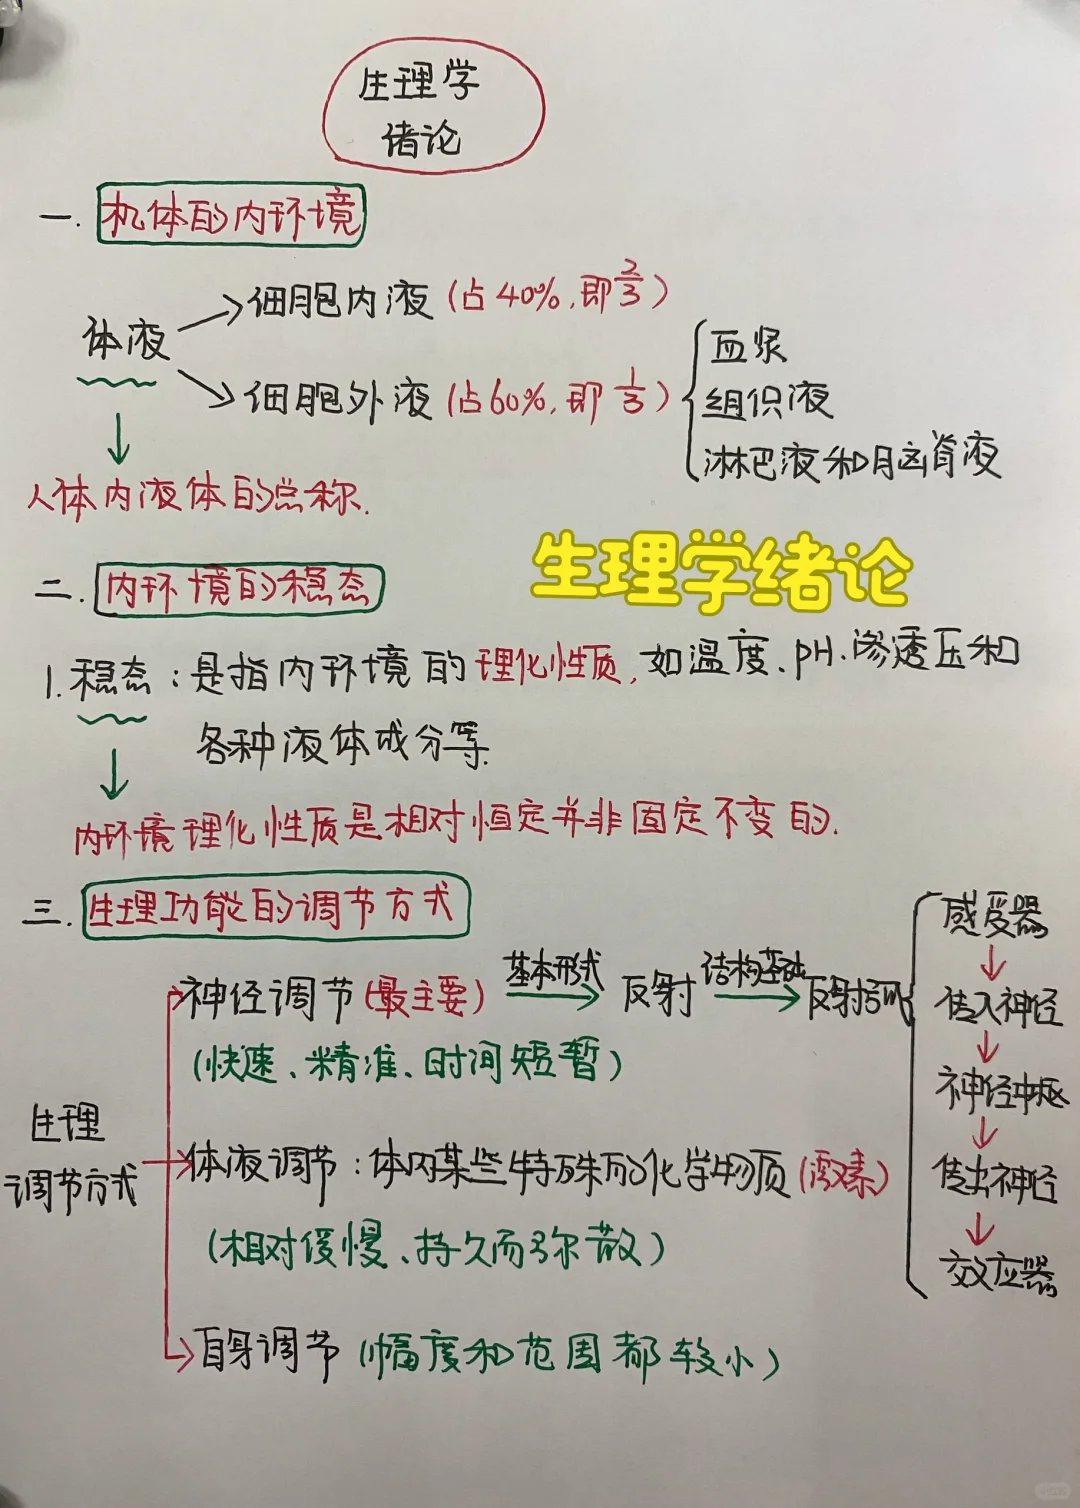 生理学
绪论
一. 机体的内环境
体液
细胞内液 (占40%, 即2/3)
细胞外液 (占60%, 即1/3)
血浆
组织液
淋巴液和脑脊液
人体内液体的总称.
生理学绪论
二. 内环境的稳态
1. 稳态: 是指内环境的理化性质, 如温度、pH、渗透压和
各种液体成分等.
内环境理化性质是相对恒定并非固定不变的.
三. 生理功能的调节方式
生理
调节方式
神经调节 (最主要) 基本形式 反射 结构基础 反射弧
(快速、精准、时间短暂)
感受器
传入神经
神经中枢
传出神经
效应器
体液调节: 体内某些特殊的化学物质 (激素)
(相对缓慢、持久而弥散)
自身调节 (幅度和范围都较小)
小红书